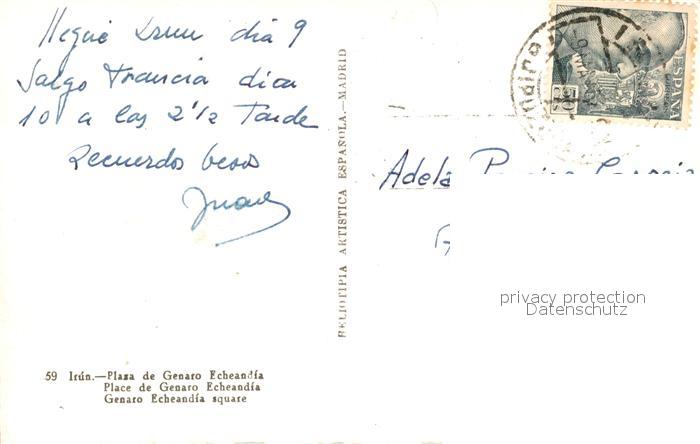 Llegué Irun dia 9
Salgo Francia dia
10 a las 2 1/2 Tarde
Recuerdos besos
Juan
59 Irún.—Plaza de Genaro Echeandía
Place de Genaro Echeandía
Genaro Echeandía square
HELIOTIPIA ARTISTICA ESPAÑOLA.—MADRID
ESPAÑA
Adela
privacy protection
Datenschutz